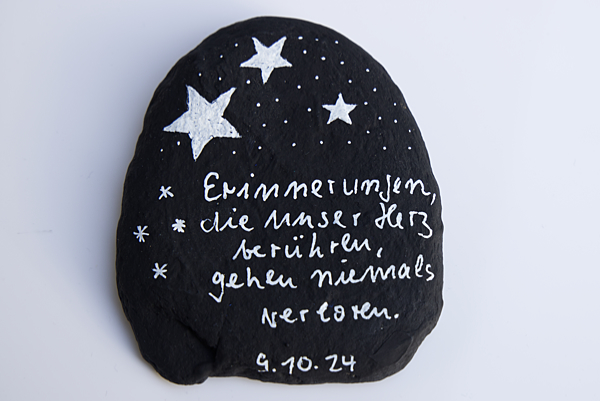 Erinnerungen,
die unser Herz
berühren,
gehen niemals
verloren.
9.10.24